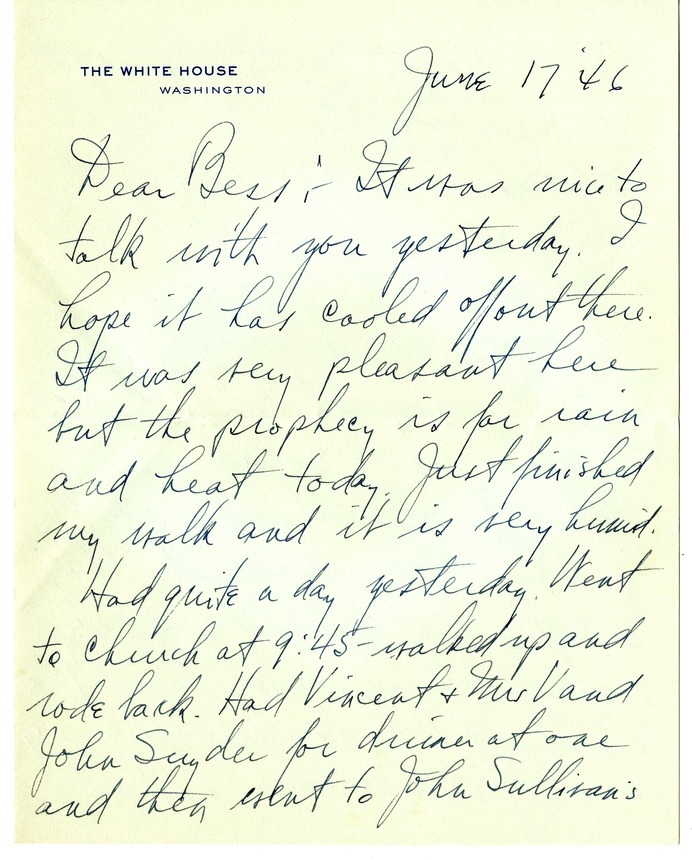 THE WHITE HOUSE
WASHINGTON
June 17 '46
Dear Bess:- It was nice to
talk with you yesterday. I
hope it has cooled off out there.
It was very pleasant here
but the prophecy is for rain
and heat today. Just finished
my walk and it is very humid.
Had quite a day yesterday. Went
to church at 9:45 - walked up and
rode back. Had Vincent & Mrs V and
John Snyder for dinner at one
and then went to John Sullivan's